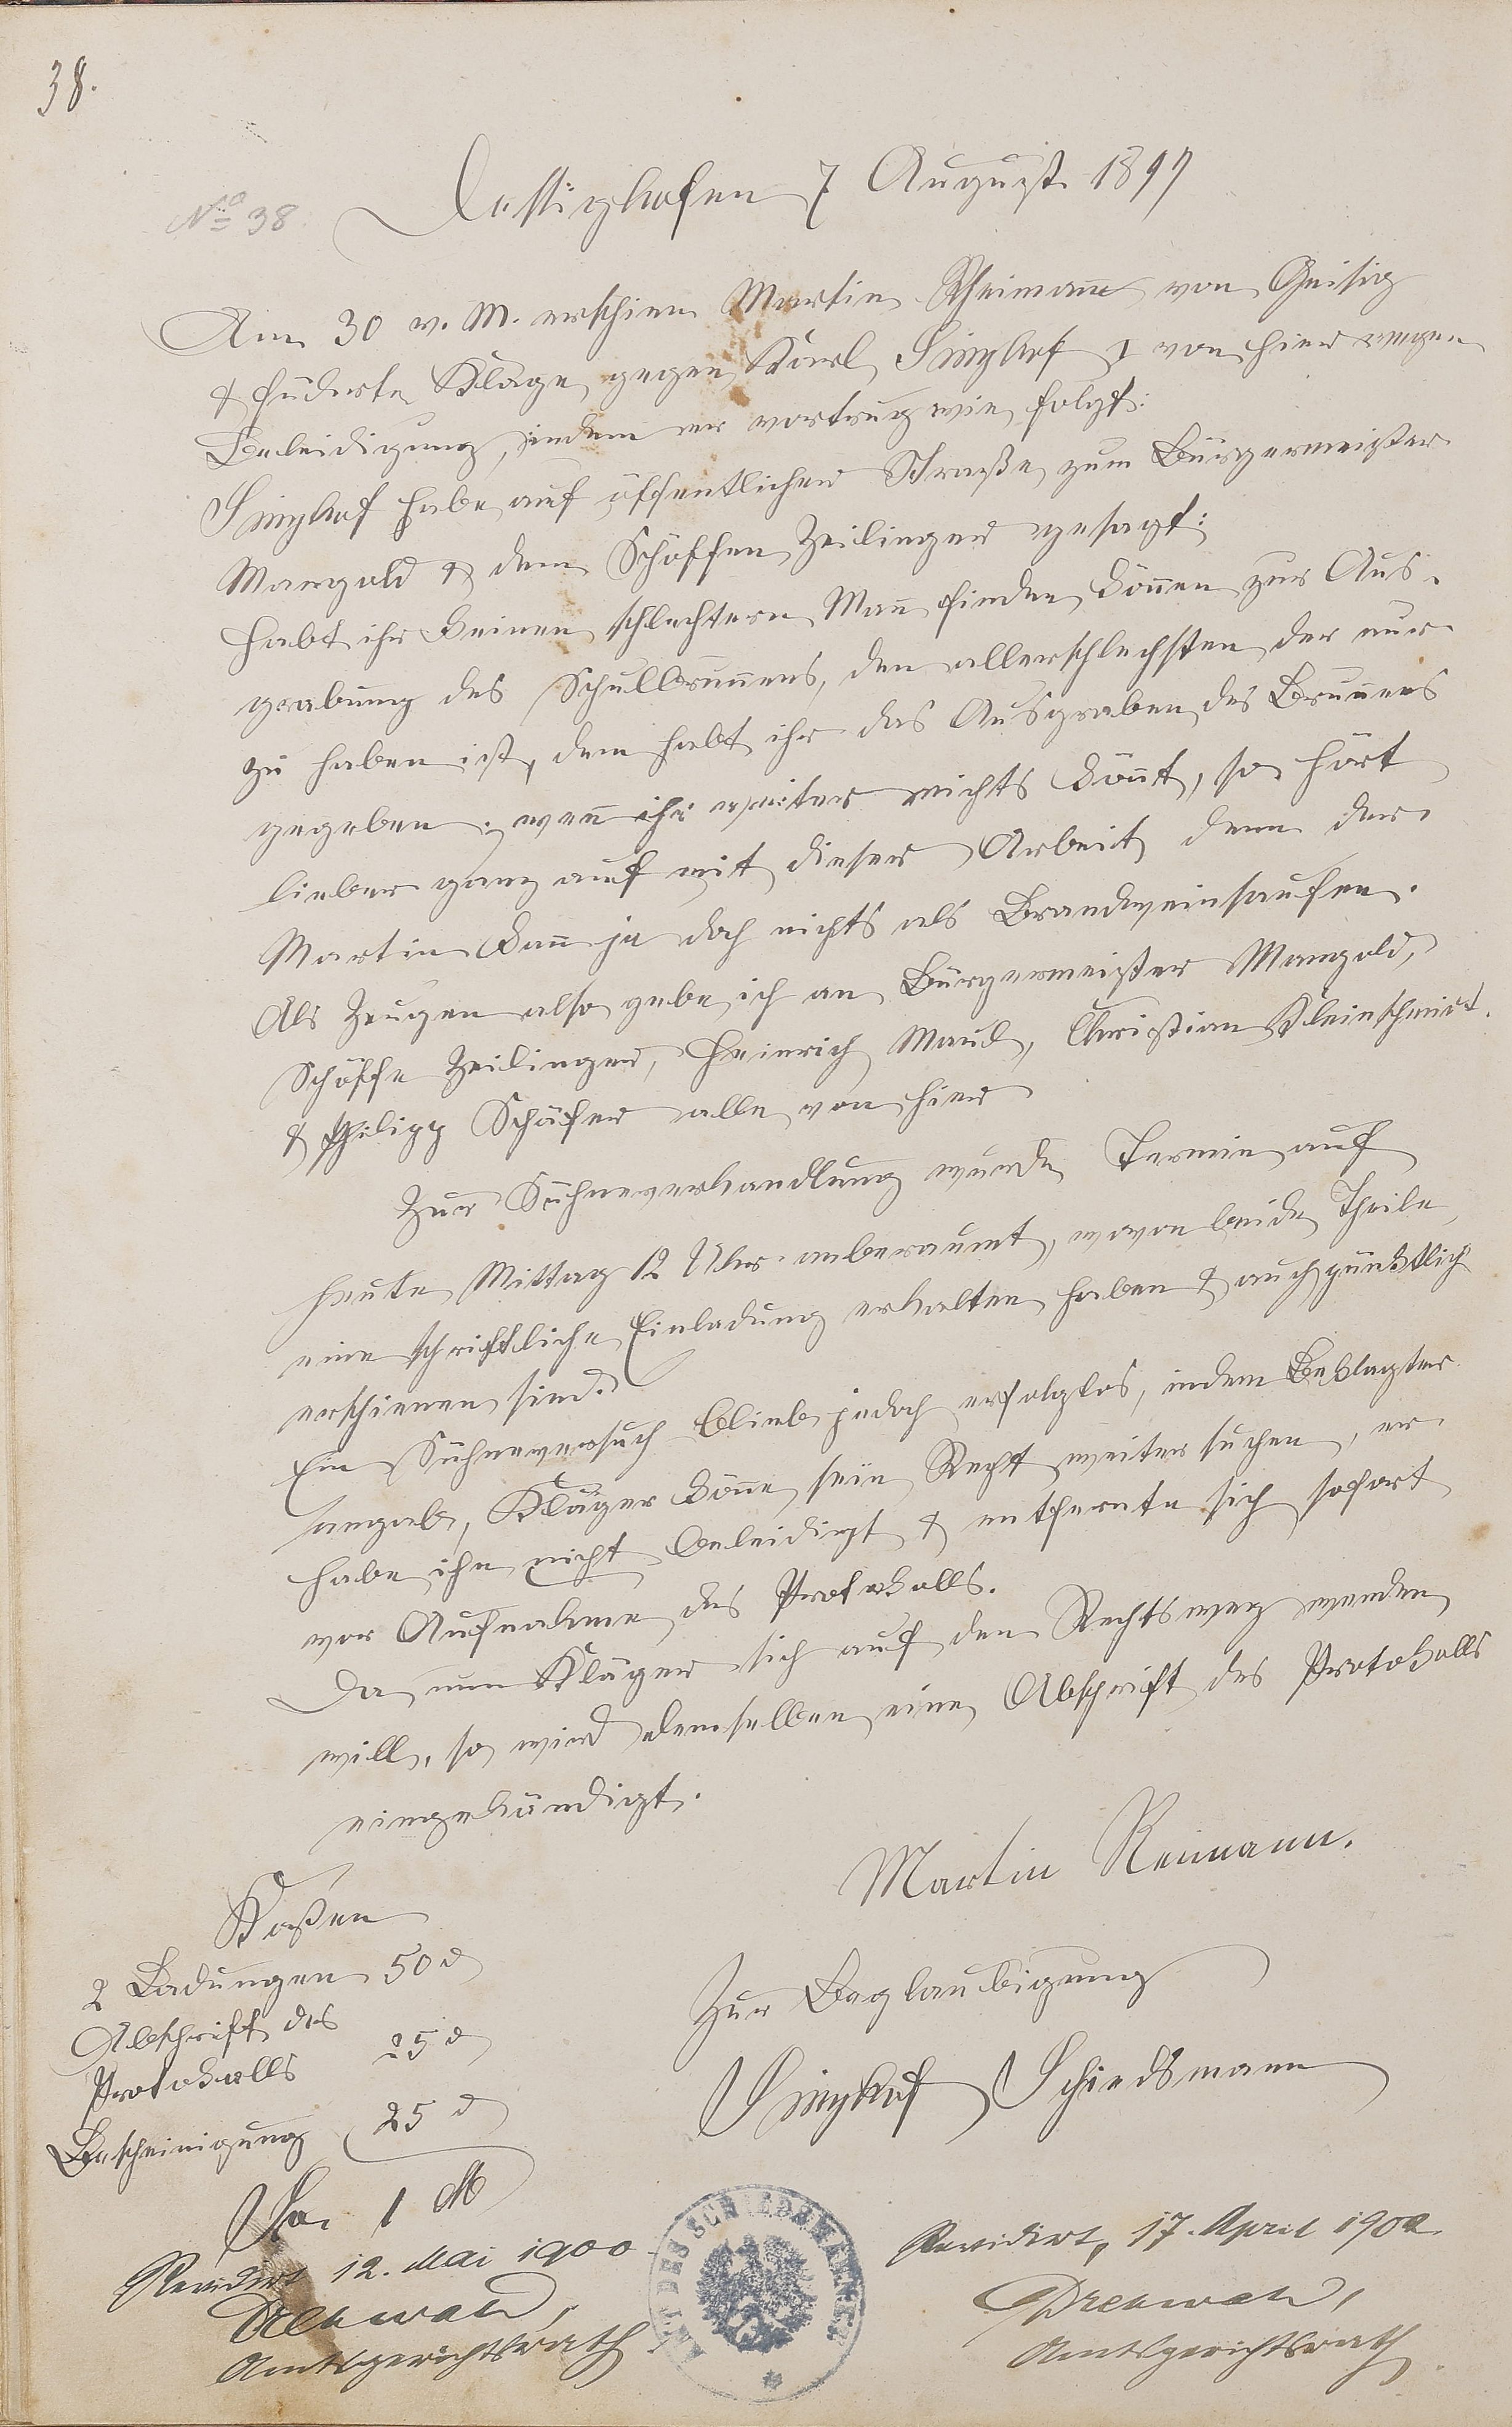 38.
No 38
Dessighofen 7 August 1897
Am 30 v. M. erschien Martin Rheimann von Geisig
& führte Klage gegen Karl Singhof I von hier wegen
Beleidigung, indem er vortrug wie folgt:
Singhof habe auf öffentlicher Straße zum Bürgermeister
Mangold & dem Schöffen Zeilinger gesagt:
Habt ihr keinen schlechtern Man̄ finden kön̄en zur Aus-
grabung des Schulbrun̄ens, den allerschlechsten der nur
zu haben ist, dem habt ihr das Ausgraben des Brun̄ens
gegeben; wen̄ ihr weiter nichts kön̄t, so hört
lieber ganz auf mit dieser Arbeit denn der
Martin kan̄ ja doch nichts als Brandweinsaufen.
Als Zeugen also gebe ich an Bürgermeister Mangold,
Schöffe Zeilinger, Heinrich Maus, Christian Kleinschmidt
& Philipp Schäfer alle von hier
Zur Sühneverhandlung wurde Termin auf
heute Mittag 12 Uhr anberaumt, wovon beide Theile,
eine schriftliche Einladung erhalten haben & auch pünktlich
erschienen sind.
Ein Sühneversuch blieb jedoch erfolglos, indem Beklagter
angab, Kläger kön̄e sein Recht weiter suchen, er
habe ihn nicht beleidigt & entfernte sich sofort
vor Aufnahme des Protokolls.
Da nun Kläger sich auf den Rechtsweg wenden
will, so wird demselben eine Abschrift des Protokolls
eingehändigt.
Martin Reimann.
Kosten
2 Ladungen 50 d
Abschrift des
Protokolls 25 d
Bescheinigung 25 d
Sa. 1 M
Zur Beglaubigung
Singhof Schiedsmann
Revidirt 12. Mai 1900
Amtsgerichtsrath
DES SCHIEDSMANNES
Revidirt, 17. April 1902
Amtsgerichtsrath